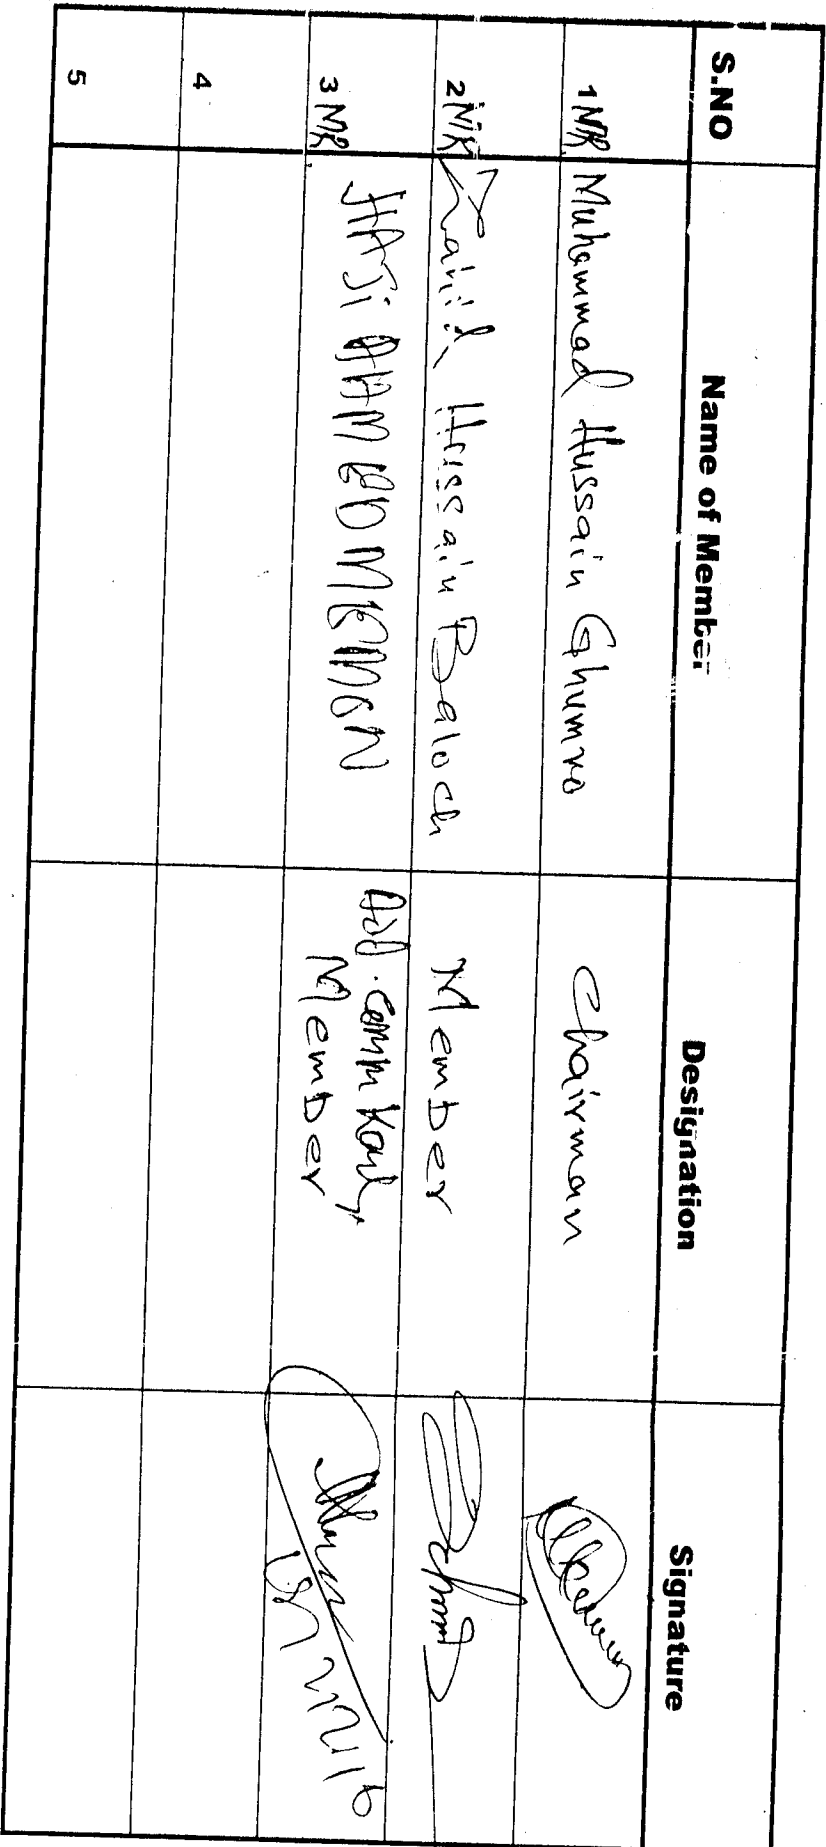 S.NO Name of Member Designation Signature
1 MR Muhammad Hussain Ghumro Chairman
2 MR Zahid Hussain Baloch Member
3 MR HAJI AHMED MEMON Member
4
5